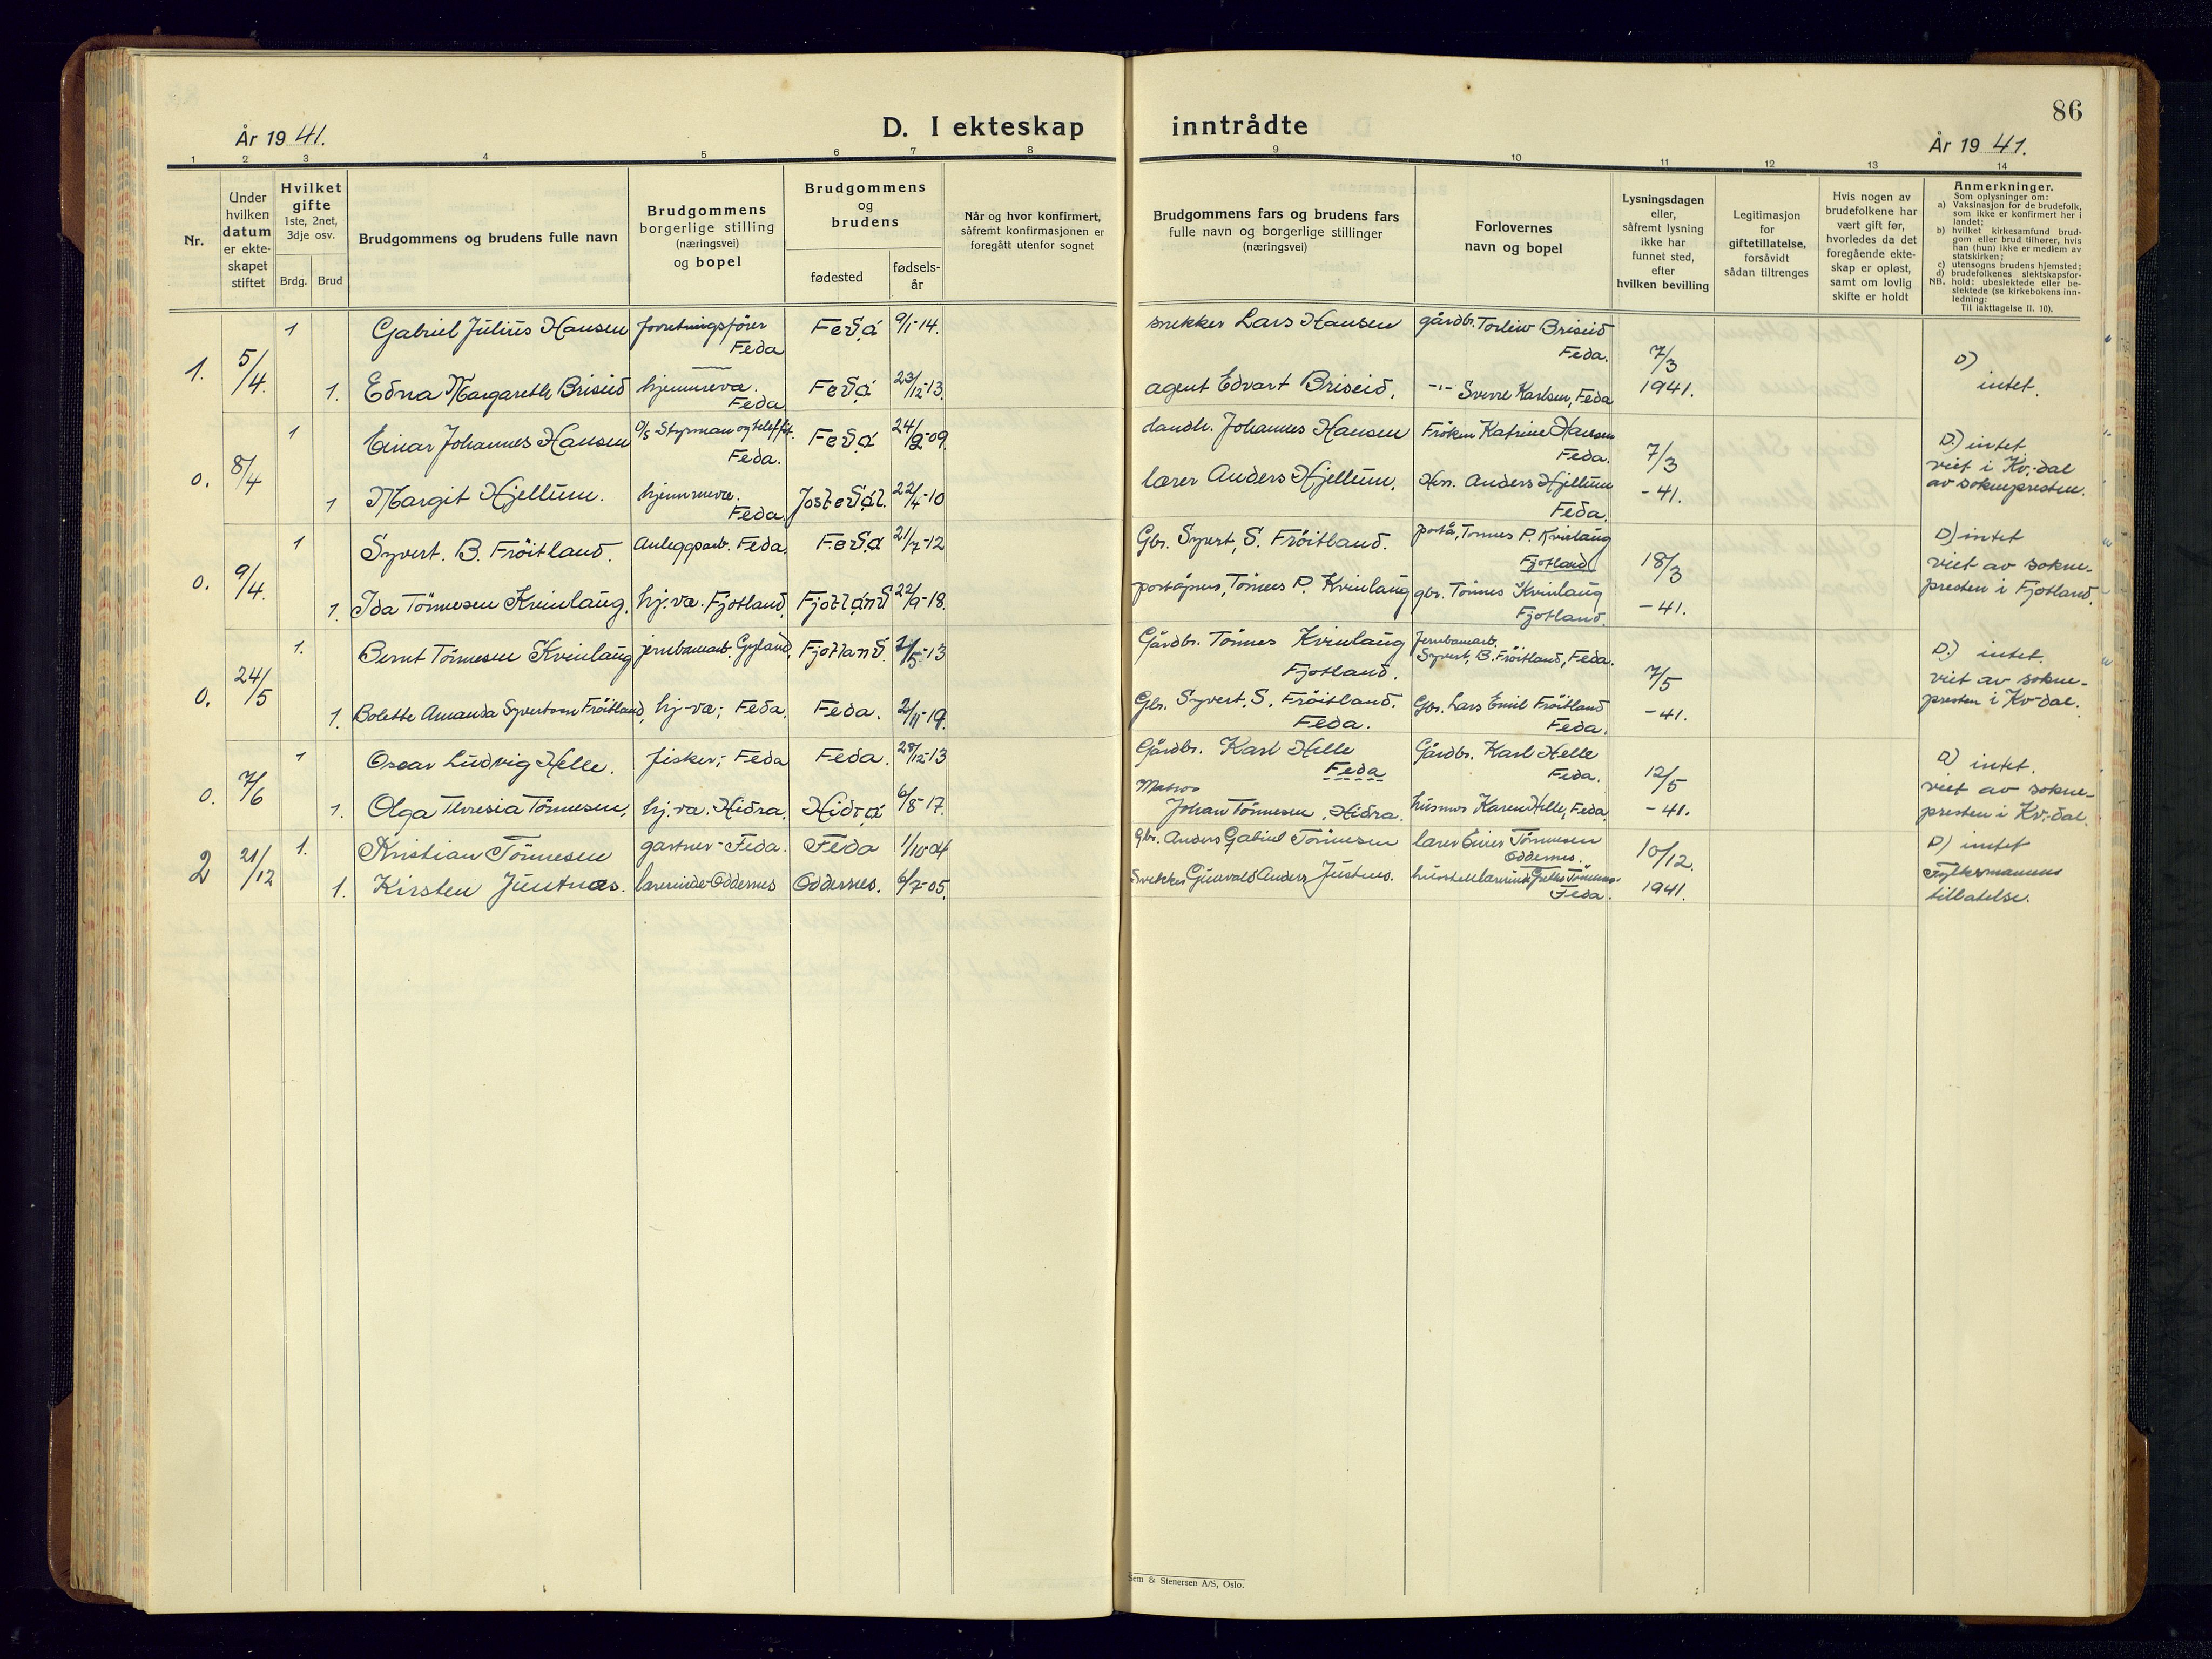 86
År 1941.
D. I ekteskap inntrådte
År 1941.
1 2 3 4 5 6 7 8 9 10 11 12 13 14
Nr.
Under
hvilken
datum
er ekte-
skapet
stiftet
Hvilket
gifte
1ste, 2net,
3dje osv.
Brdg. Brud
Brudgommens og brudens fulle navn
Brudgommens
borgerlige stilling
(næringsvei)
og bopel
Brudgommens
og
brudens
fødested
fødsels-
år
Når og hvor konfirmert,
såfremt konfirmasjonen er
foregått utenfor sognet
Brudgommens fars og brudens fars
fulle navn og borgerlige stillinger
(næringsvei)
Forlovernes
navn og bopel
Lysningsdagen
eller,
såfremt lysning
ikke har
funnet sted,
efter
hvilken bevilling
Legitimasjon
for
giftetillatelse,
forsåvidt
sådan tiltrenges
Hvis nogen av
brudefolkene har
vært gift før,
hvorledes da det
foregående ekte-
skap er opløst,
samt om lovlig
skifte er holdt
Anmerkninger.
Som oplysninger om:
a) Vaksinasjon for de brudefolk,
som ikke er konfirmert her i
landet;
b) hvilket kirkesamfund brud-
gom eller brud tilhører, hvis
han (hun) ikke er medlem av
statskirken;
c) utensogns brudens hjemsted;
d) brudefolkenes slektskapsfor-
NB. hold: ubeslektede eller be-
slektede (se kirkebokens inn-
ledning:
Til iakttagelse II. 10).
1. 5/4.
1 Gabriel Julius Hansen forretningsfører Feda Feda 9/1-14. snekker Lars Hansen gårdbr. Torleiv Briseid Feda. 7/3
1. Edna Margareth Briseid hjemmevæ. Feda Feda 23/12-13. agent Edvart Briseid. -"- Sverre Karlsen, Feda 1941.
D) intet.
0. 8/4
1 Einar Johannes Hansen Styrman og Feda. Feda 24/2-09. Johannes Hansen Frøken Katrine Hansen Feda. 7/3
1 Margit Hjellum. hjemmevæ. Feda. Jostedal. 22/4-10 lærer Anders Hjellum. Hr. Anders Hjellum Feda. -41.
D.) intet
viet i Kv.-dal
av sokneprésten.
0. 9/4.
1 Syvert. B. Frøitland. Anleggsarb. Feda. Feda 21/7-12 Gbr. Syvert, S. Frøitland. postå, Tønnes P. Kvinlaug Fjotland 18/3
1. Ida Tønnesen Kvinlaug. hj.væ. Fjotland Fjotland 22/9-18. poståpner, Tønnes P. Kvinlaug gbr. Tønnes Kvinlaug Fjotland. -41.
D) intet
viet av sokne-
presten i Fjotland.
0. 24/5
1. Bernt Tønnesen Kvinlaug jernbanearb. Gyland, Fjotland. 2/5-13 Gårdbr. Tønnes Kvinlaug Fjotland. Jernbanearb. Syvert, B. Frøitland, Feda. 7/5
1. Bolette Amanda Syvertsen Frøitland, hj-væ; Feda. Feda. 2/11-19. Gbr. Syvert, S. Frøitland. Feda. Gbr. Lars Emil Frøitland Feda. -41.
D.) intet.
viet av sokne-
presten i Kv-dal.
0. 7/6
1 Oscar Ludvig Helle. fisker; Feda Feda. 28/12-13 Gårdbr. Karl Helle Feda Gårdbr. Karl Helle Feda. 12/5
1. Olga Theresia Tønnesen, hj.væ. Hidra. Hidra 6/8-17. Matros Johan Tønnesen, Hidra. husmor Karen Helle, Feda -41.
D) intet.
viet av sokne-
presten i Kv.-dal.
2 21/12
1. Kristian Tønnesen gartner-Feda. Feda 1/10-04 Gbr. Anders Gabriel Tønnesen lærer Tønnesen Oddernes. 10/12.
1. Kirsten Juutnæs. lærerinde-Oddernes Oddernes. 6/7-05. Snekker Gunvald Anders Feda. 1941.
D) intet
Fylkesmannens
tillatelse.
Sem & Stenersen A/S, Oslo.